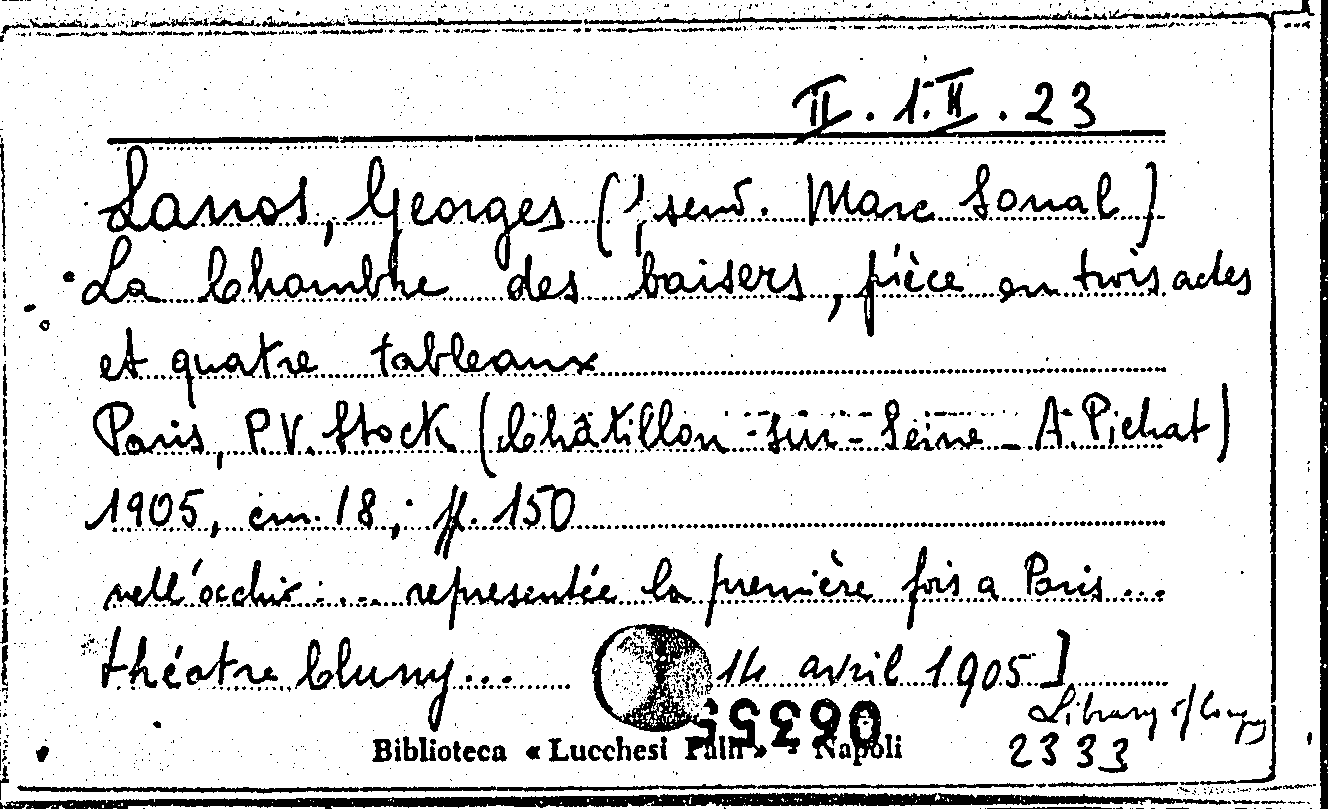 II. 1.II. 23
Lanos, Georges (, send. Marc Sonal)
La Chambre des baisers, pièce en trois actes
et quatre tableaux
Paris, P.V. Stock (Châtillon-sur-Seine - A. Pichat)
1905, cm. 18; pp. 150
nell'occhio: ... representée la première fois a Paris ...
théatre Cluny ... 14 avril 1905]
06355
Biblioteca « Lucchesi Palli » - Napoli
Library of
2333